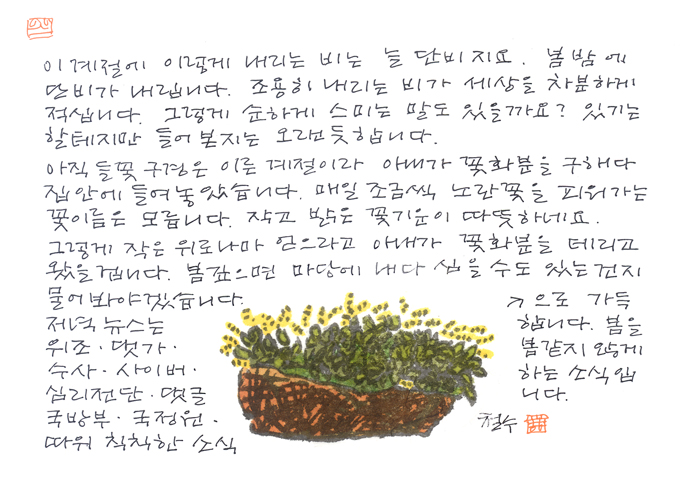 이 계절에 이렇게 내리는 비는 늘 단비지요. 봄밤에
단비가 내립니다. 조용히 내리는 비가 세상을 차분하게
적십니다. 그렇게 순하게 스미는 말도 있을까요? 있기는
할테지만 들어본지는 오랜듯합니다.
아직 들꽃 구경은 이른 계절이라 아내가 꽃화분을 구해다
집안에 들여놓았습니다. 매일 조금씩 노란꽃을 피워가는
꽃이름은 모릅니다. 작고 밝은 꽃기운이 따뜻하네요.
그렇게 작은 위로나마 얻으라고 아내가 꽃화분을 데리고
왔을겁니다. 봄깊으면 마당에 내다 심을 수도 있는건지
물어봐야겠습니다.
저녁 뉴스는
위조·댓가·
수사·사이버·
심리전단·댓글
국방부·국정원·
따위 칙칙한 소식
↗으로 가득
합니다. 봄을
봄같지 않게
하는 소식입
니다.
철수